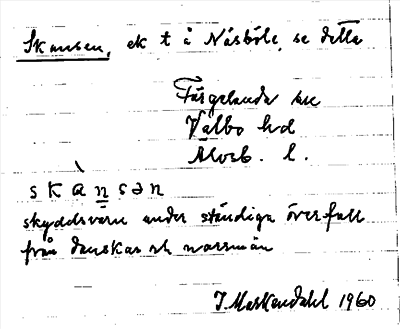 Skansen, ek t å Näsböle, se detta
Färgelanda sn
Valbo hd
Älvsb. l.
skansən
skyddsvärn under ständiga överfall
från danskar och norrmän
J. Markendahl 1960